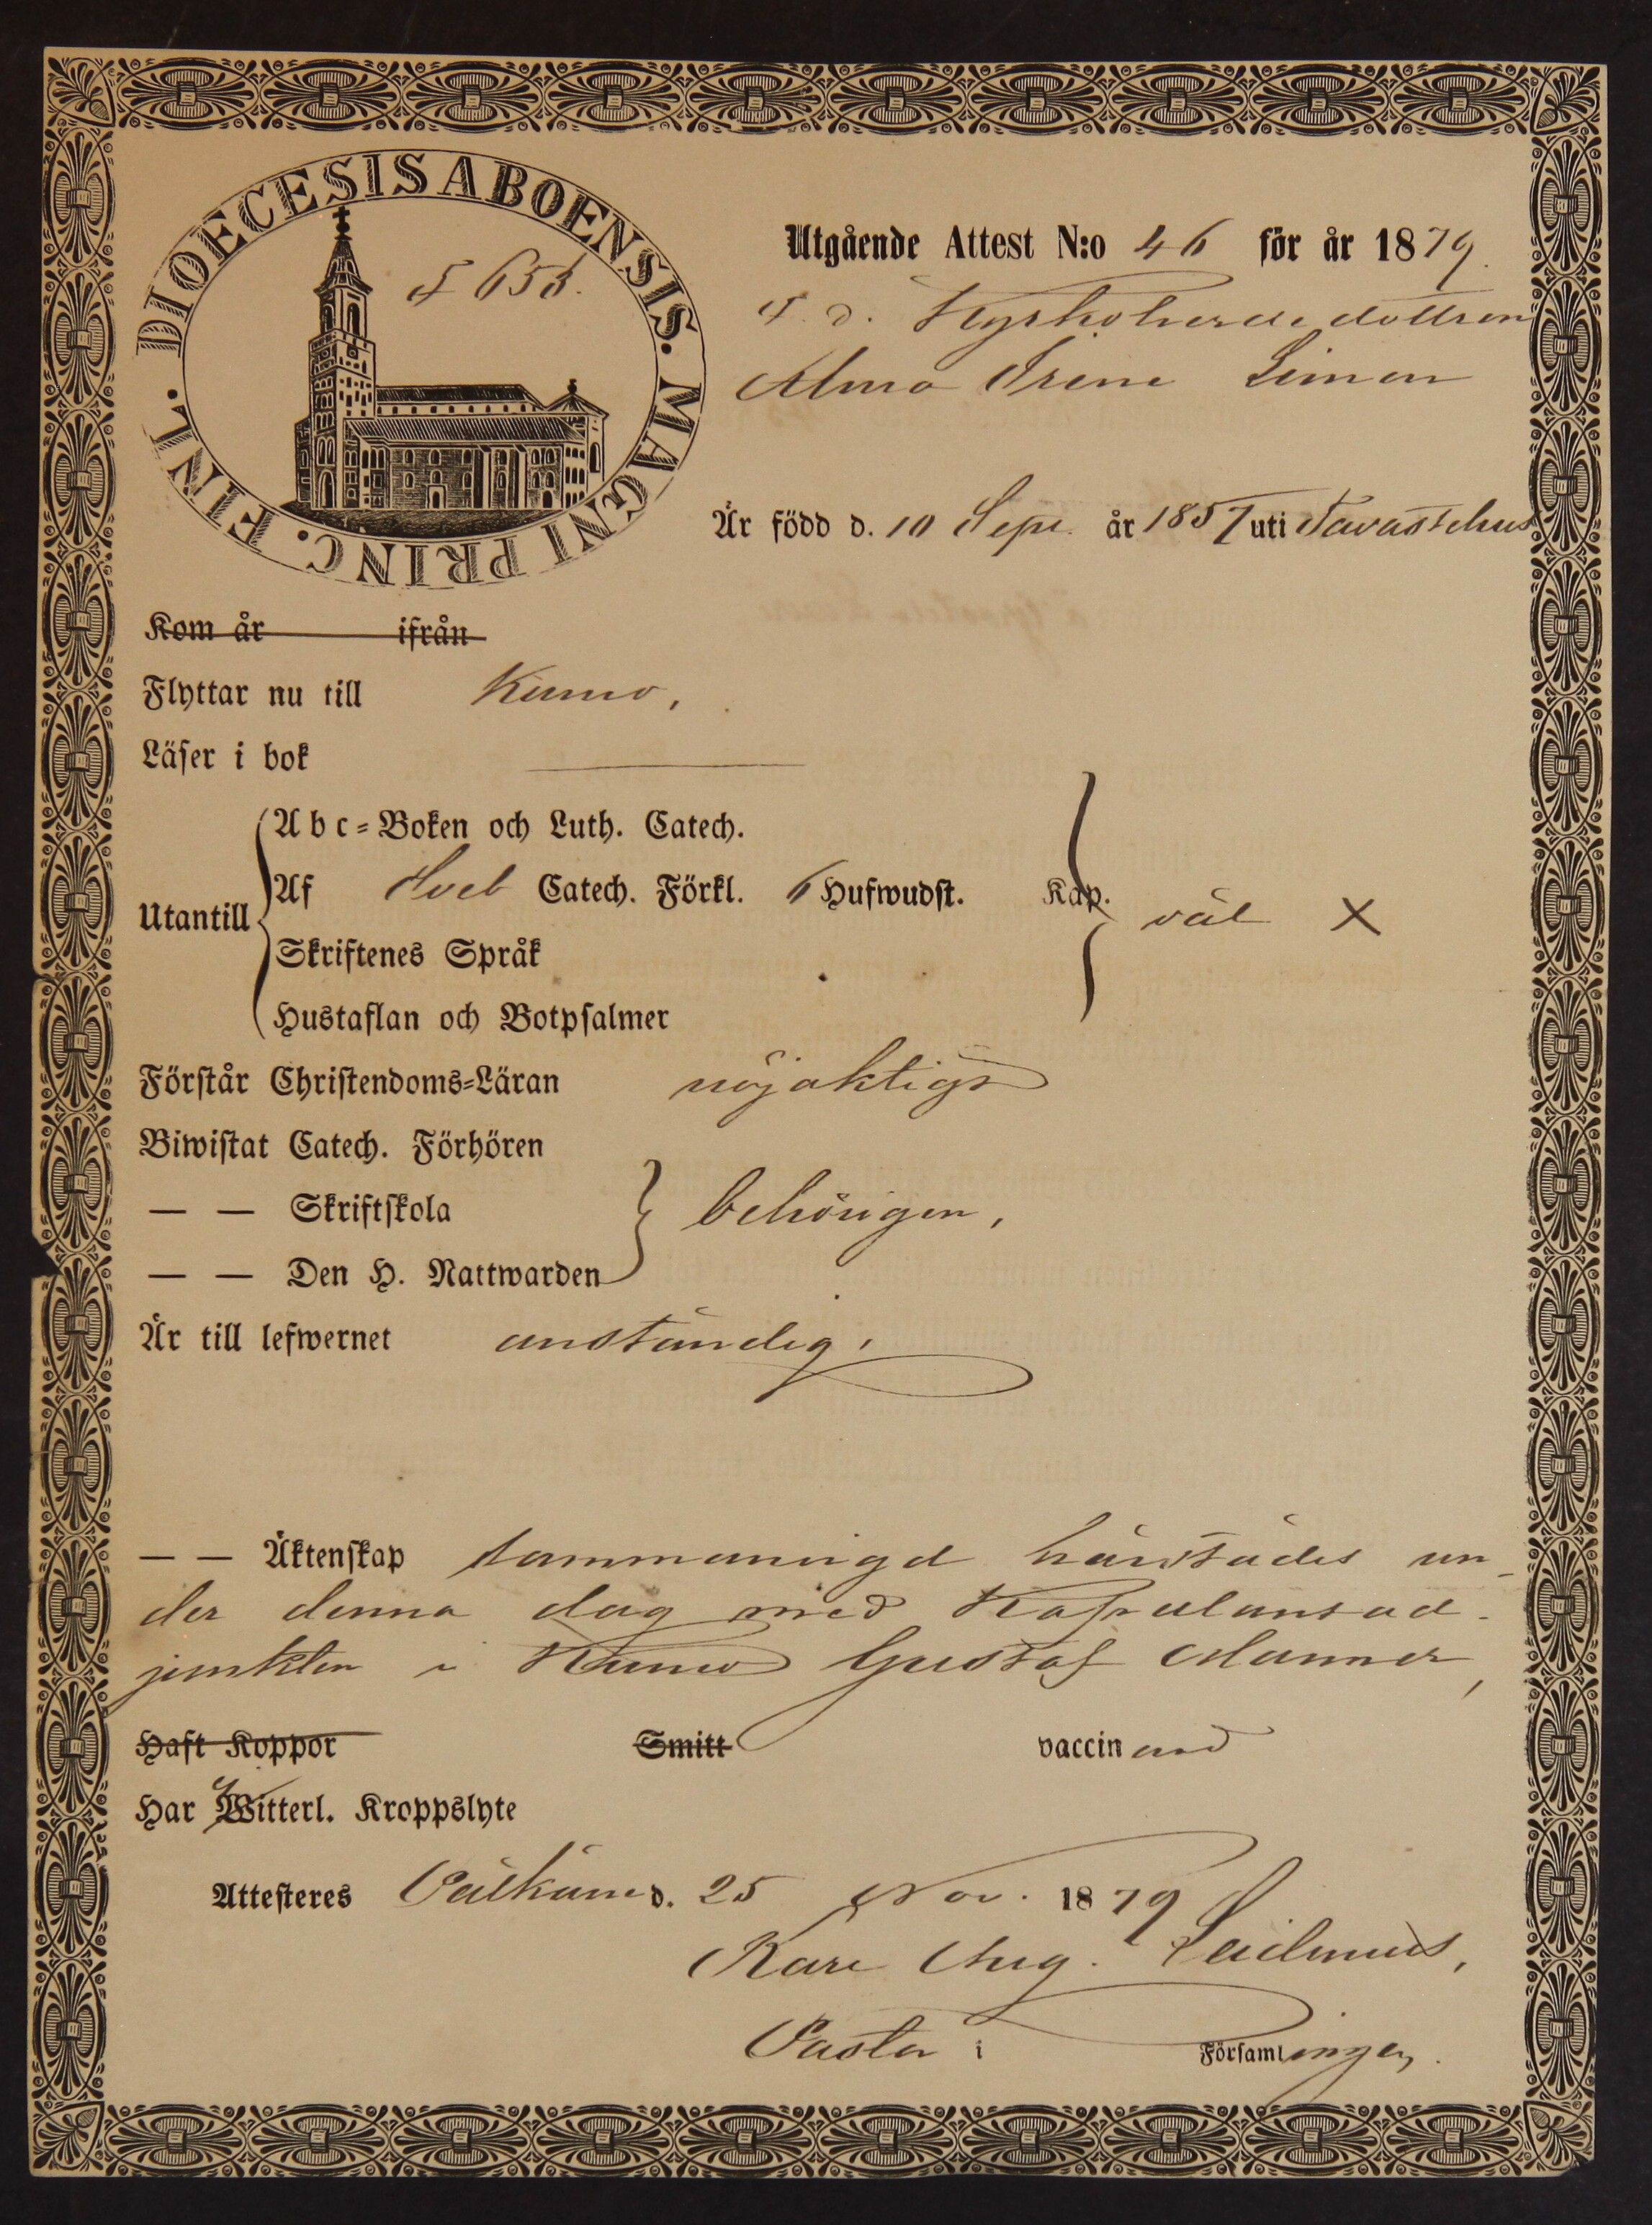 DIOECESIS ABOENSIS. MAGNI PRINC. FINL.
F 653.
Utgående Attest N:o 46 för år 1879.
F. d. Kyrkoherdedottren
Alma Irene Limon
Är född d. 10 Sept. år 1857 uti Tavastehus
Kom år ifrån
Flyttar nu till Kumo,
Läser i bok
Utantill
Abc-Boken och Luth. Catech.
Af Sveb Catech. Förkl. 6 Hufwudst. Kap. väl X
Skriftenes Språk
Hustaflan och Botpsalmer
Förstår Christendoms-Läran nöjaktigt
Biwistat Catech. Förhören
— — Skriftskola behörigen,
— — Den H. Nattwarden
Är till lefwernet anständig,
— — Äktenskap sammanvigd härstädes un-
der denna dag med Kapelansad-
junkten i Kumo Gustaf Manner,
Haft Koppor Smitt vaccinerad
Har Witterl. Kroppslyte
Attesteres Pälkäne d. 25 Nov. 1879
Karl Aug.
Pastor i Församlingen.